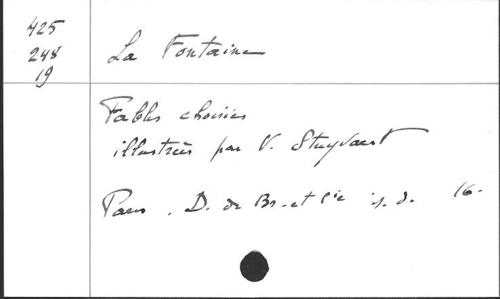 425
248
19
La Fontaine
Fables choisies
illustrées par V. Stuyvaert
Paris . D. de Br. et Cie s.d. 16.